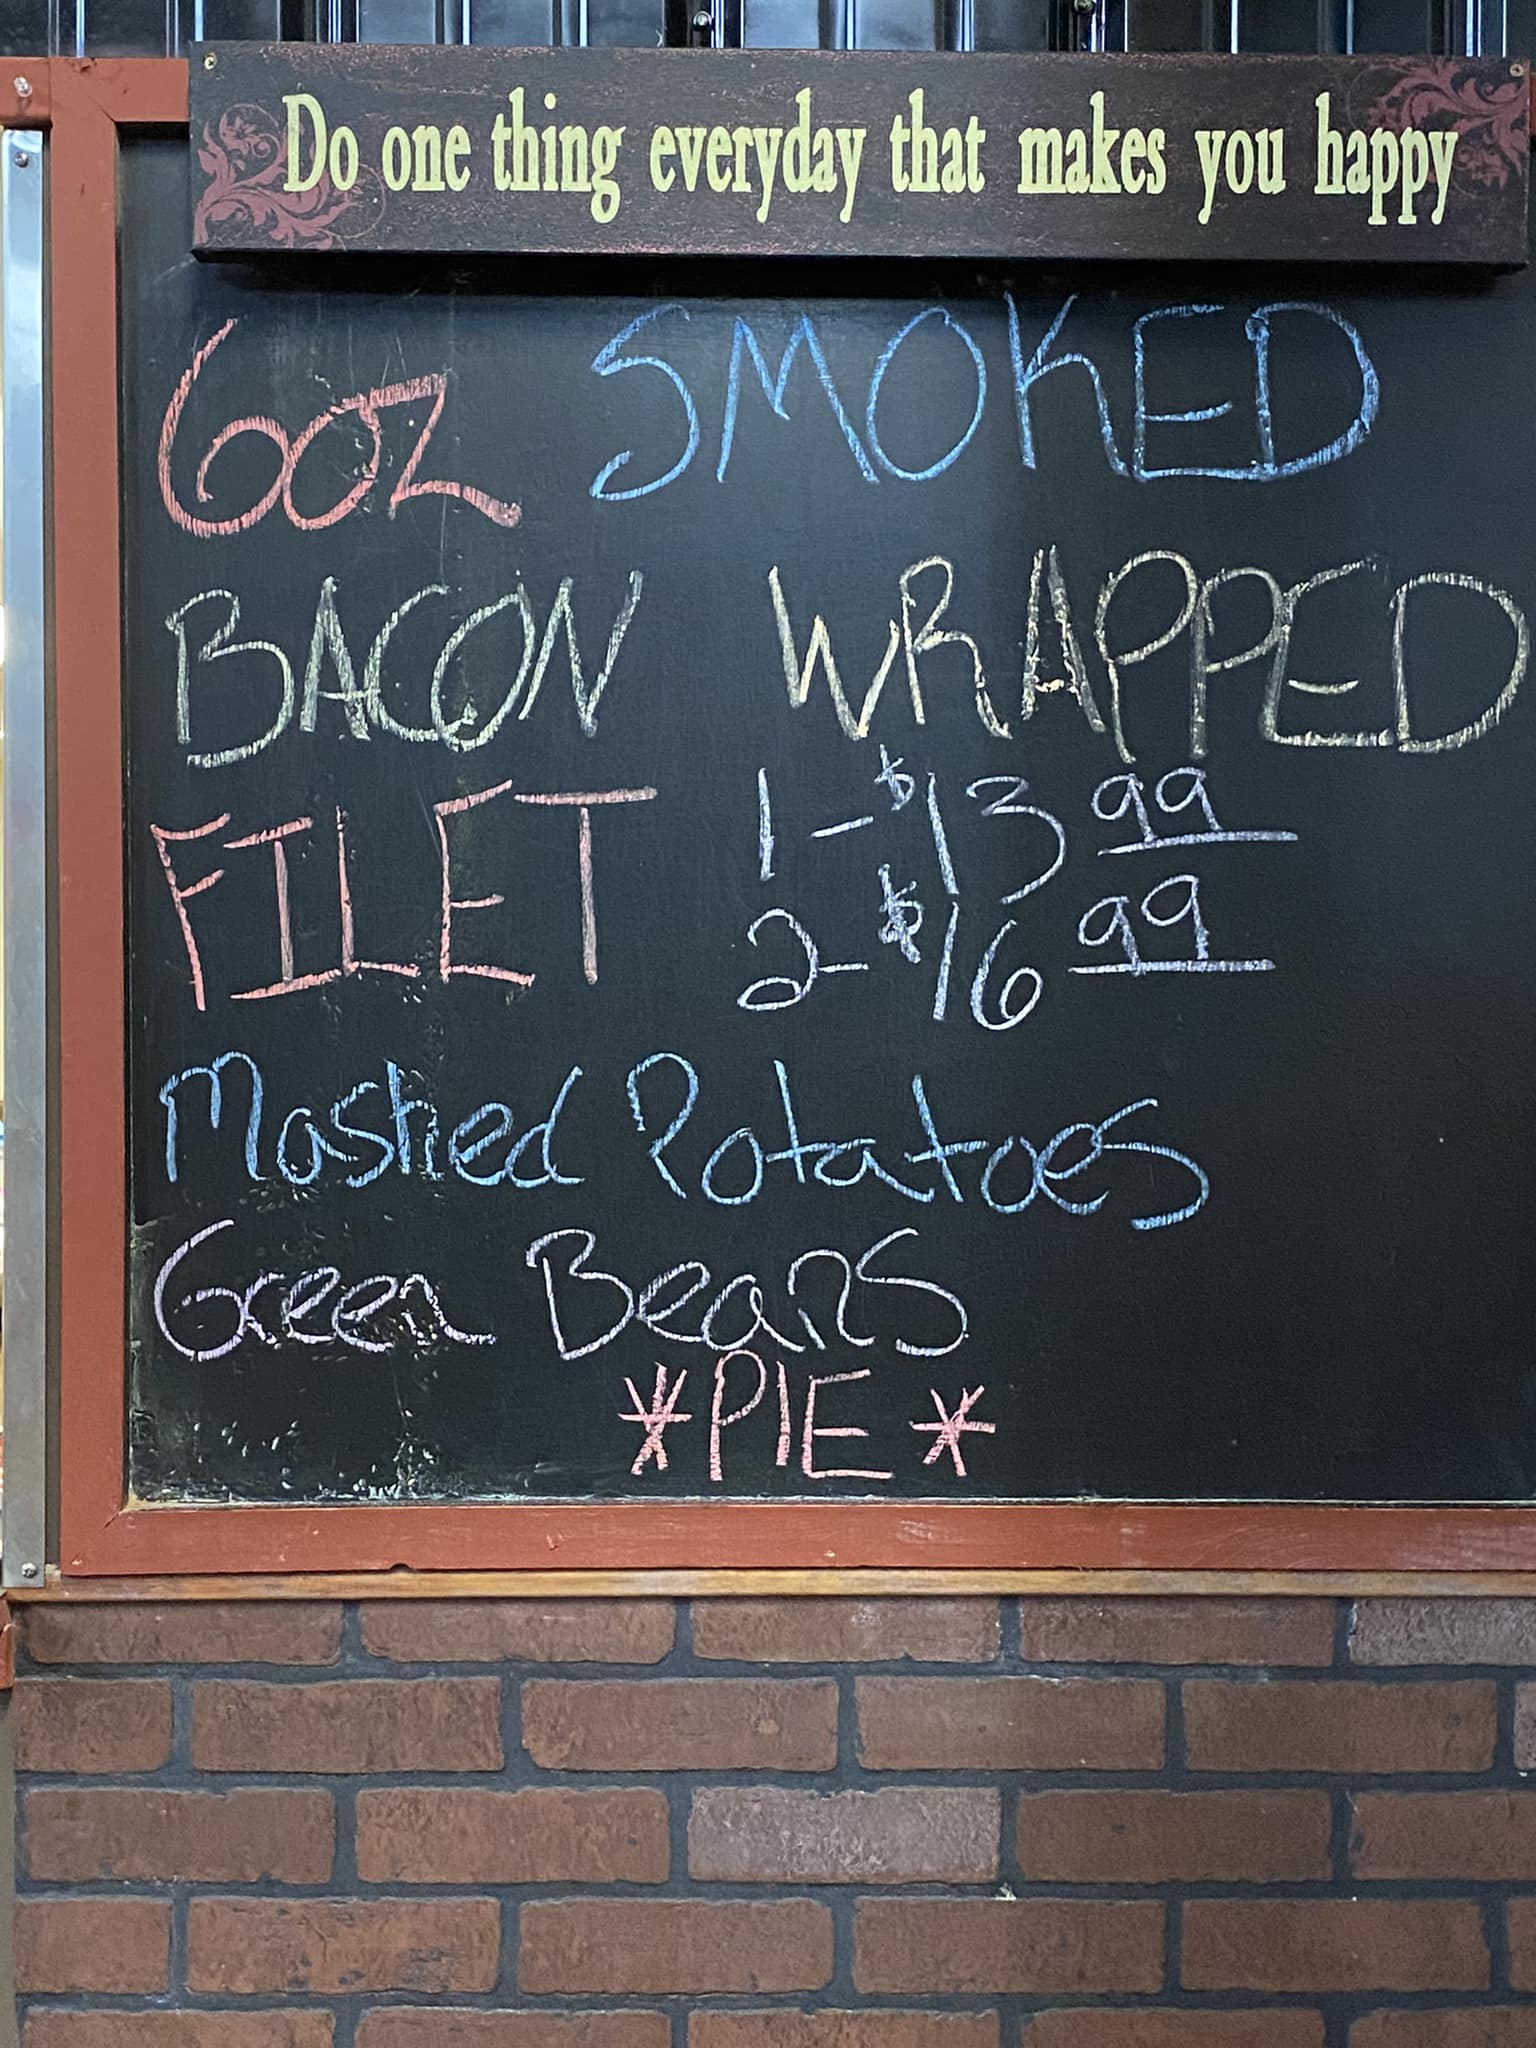 Do one thing everyday that makes you happy
6oz SMOKED
BACON WRAPPED
FILET 1-$13 99
2-$16 99
Mashed Potatoes
Green Beans
*PIE*